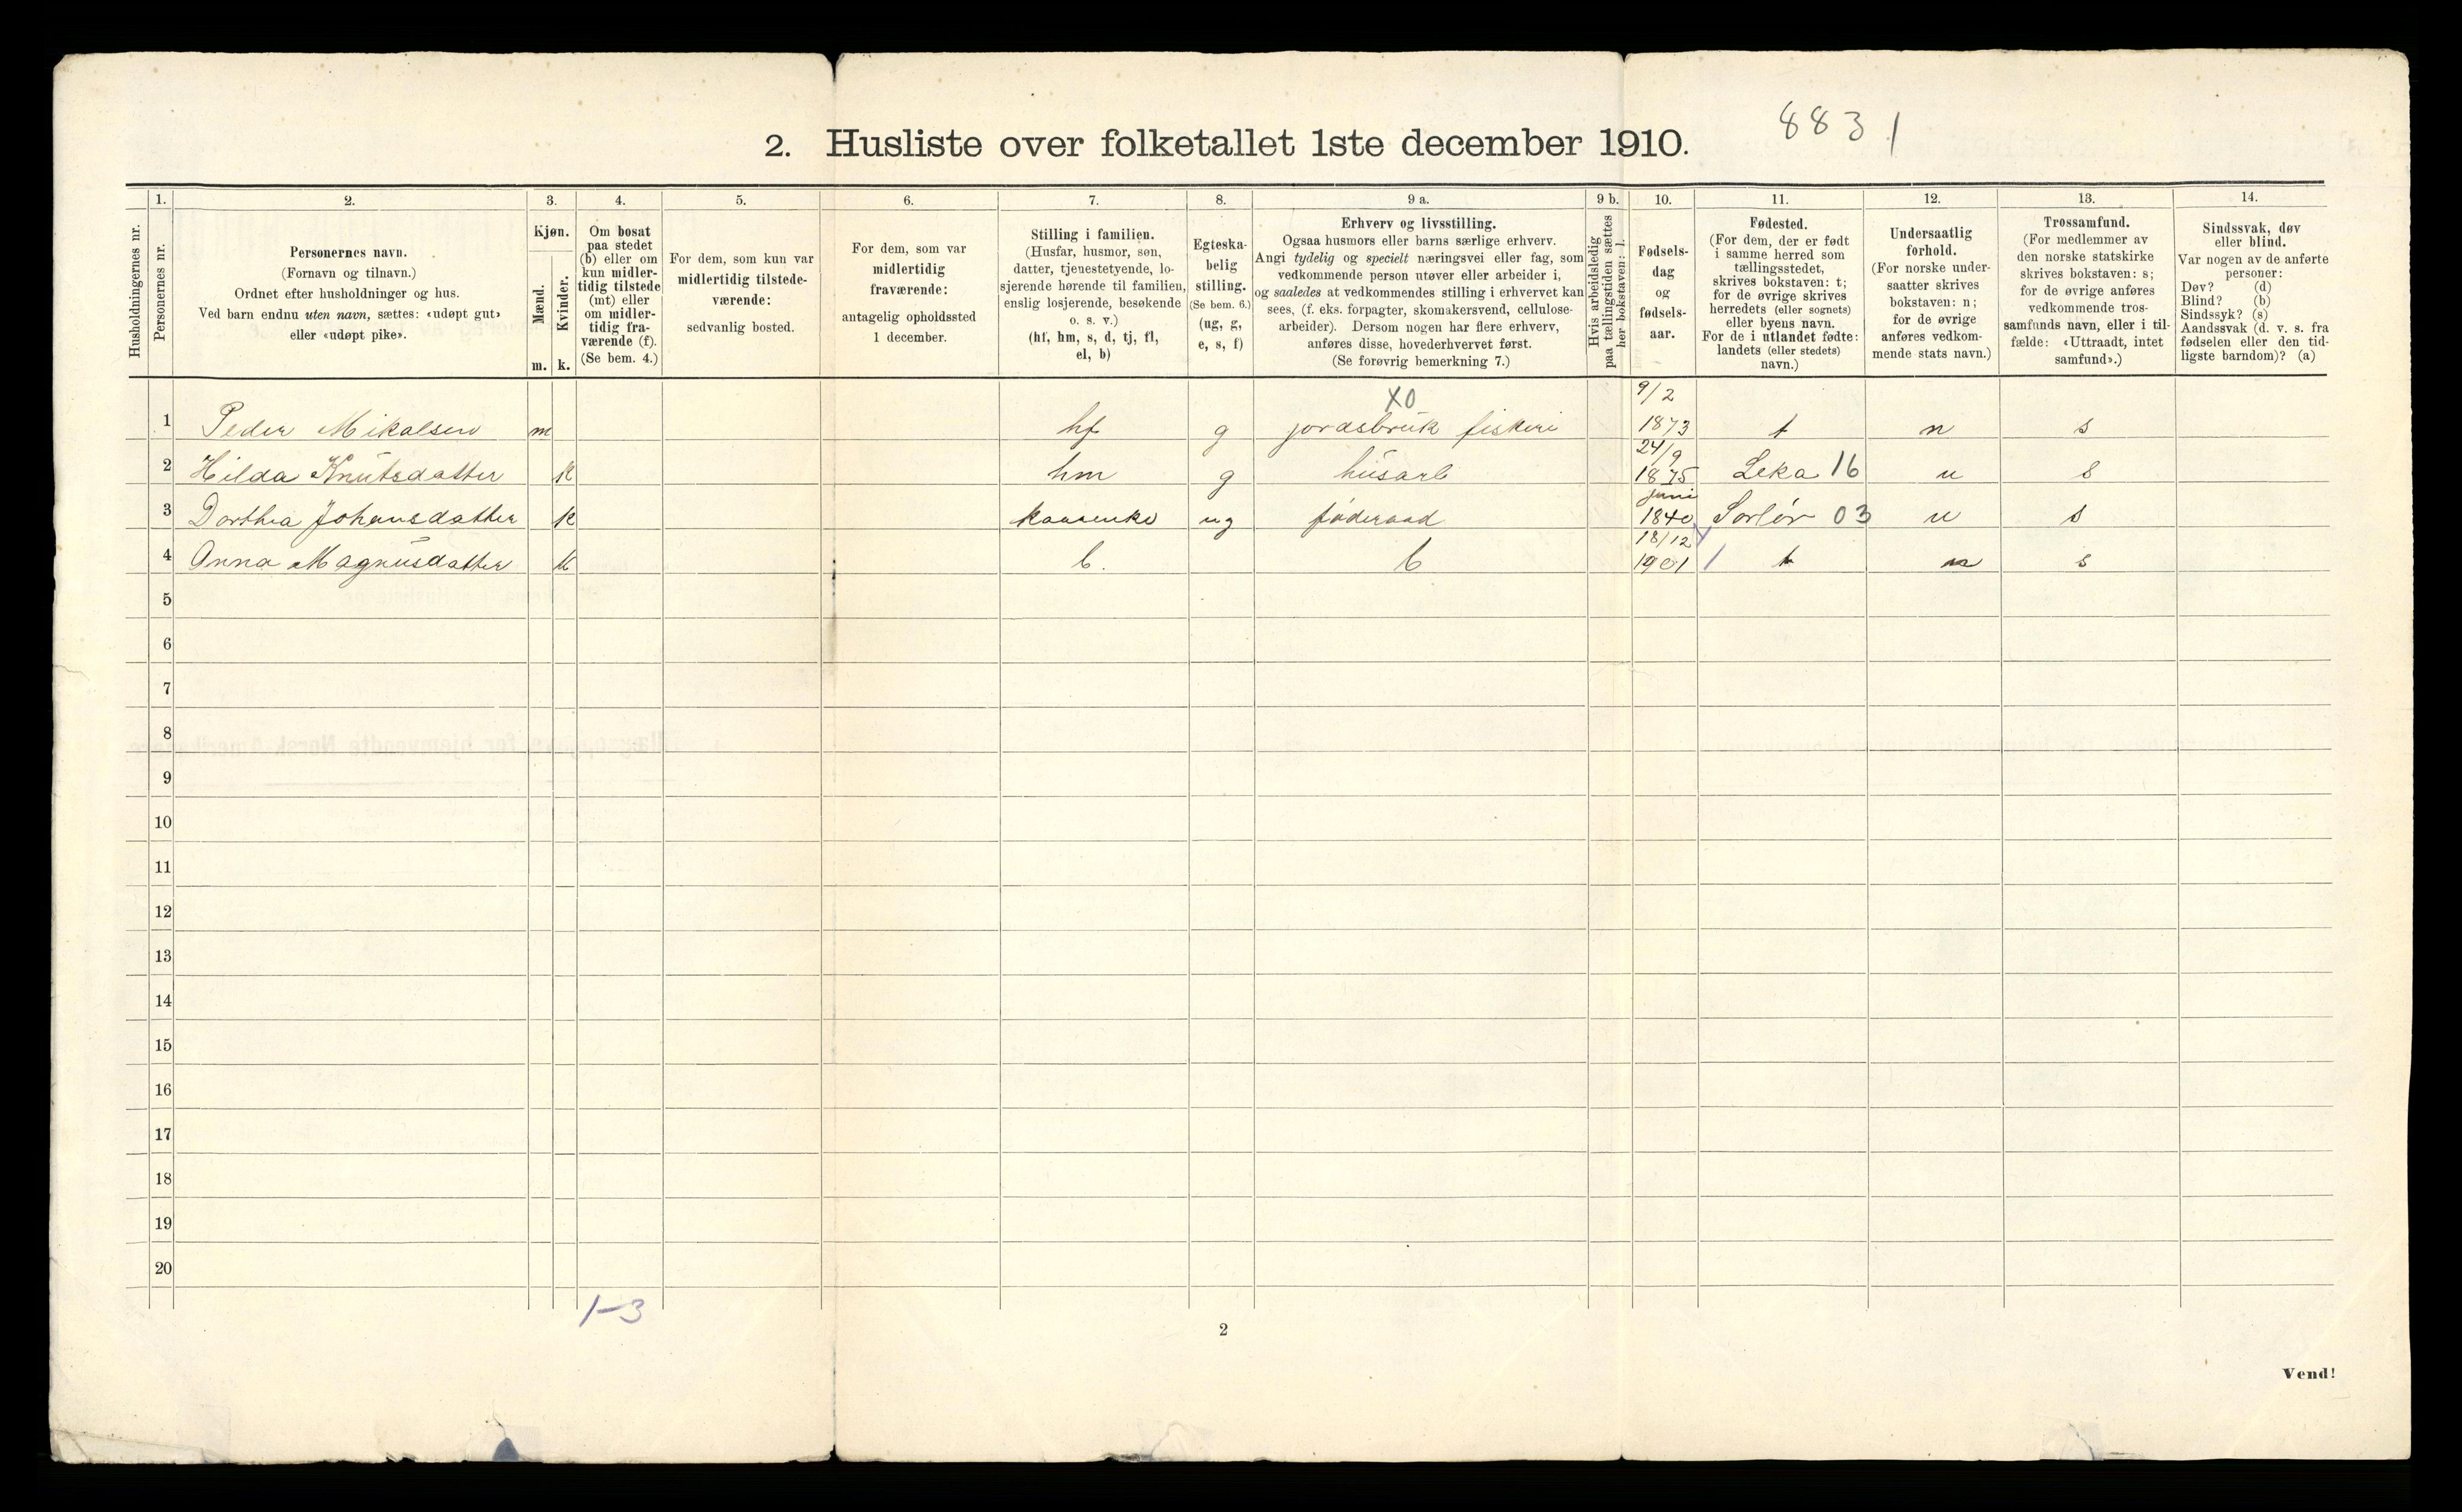 8831
2. Husliste over folketallet 1ste december 1910.
Husholdningernes nr.
1.
Personernes nr.
2.
Personernes navn.
(Fornavn og tilnavn.)
Ordnet efter husholdninger og hus.
Ved barn endnu uten navn, sættes: «udøpt gut»
eller «udøpt pike».
3.
Kjøn.
Mænd.
Kvinder.
m. k.
4.
Om bosat
paa stedet
(b) eller om
kun midler-
tidig tilstede
(mt) eller
om midler-
tidig fra-
værende (f).
(Se bem. 4.)
5.
For dem, som kun var
midlertidig tilstede-
værende:
sedvanlig bosted.
6.
For dem, som var
midlertidig
fraværende:
antagelig opholdssted
1 december.
7.
Stilling i familien.
(Husfar, husmor, søn,
datter, tjenestetyende, lo-
sjerende hørende til familien,
enslig losjerende, besøkende
o. s. v.)
(hf, hm, s, d, tj, fl,
el, b)
8.
Egteska-
belig
stilling.
(Se bem. 6.)
(ug, g,
e, s, f)
9 a.
Erhverv og livsstilling.
Ogsaa husmors eller barns særlige erhverv.
Angi tydelig og specielt næringsvei eller fag, som
vedkommende person utøver eller arbeider i,
og saaledes at vedkommendes stilling i erhvervet kan
sees, (f. eks. forpagter, skomakersvend, cellulose-
arbeider). Dersom nogen har flere erhverv,
anføres disse, hovederhvervet først.
(Se forøvrig bemerkning 7.)
9 b.
Hvis arbeidsledig
paa tællingstiden sættes
her bokstaven: l.
10.
Fødsels-
dag
og
fødsels-
aar.
11.
Fødested.
(For dem, der er født
i samme herred som
tællingsstedet,
skrives bokstaven: t;
for de øvrige skrives
herredets (eller sognets)
eller byens navn.
For de i utlandet fødte:
landets (eller stedets)
navn.)
12.
Undersaatlig
forhold.
(For norske under-
saatter skrives
bokstaven: n;
for de øvrige
anføres vedkom-
mende stats navn.)
13.
Trossamfund.
(For medlemmer av
den norske statskirke
skrives bokstaven: s;
for de øvrige anføres
vedkommende tros-
samfunds navn, eller i til-
fælde: «Uttraadt, intet
samfund».)
14.
Sindssvak, døv
eller blind.
Var nogen av de anførte
personer:
Døv? (d)
Blind? (b)
Sindssyk? (s)
Aandssvak (d. v. s. fra
fødselen eller den tid-
ligste barndom)? (a)
XO 9/2
1 Peder Mikalsen m hf g jordsbruk fiskeri 1873 t n s
24/9
2 Hilda Knutsdatter k hm g husarb 1875 Leka 16 n s
juni
3 Dorthea Johansdatter k ug føderaad 1840 Sørlør 03 n s
18/12
4 Anna Magnusdatter k b. b 1901 t n s
5
6
7
8
9
10
11
12
13
14
15
16
17
18
19
20
1-3
2
Vend!